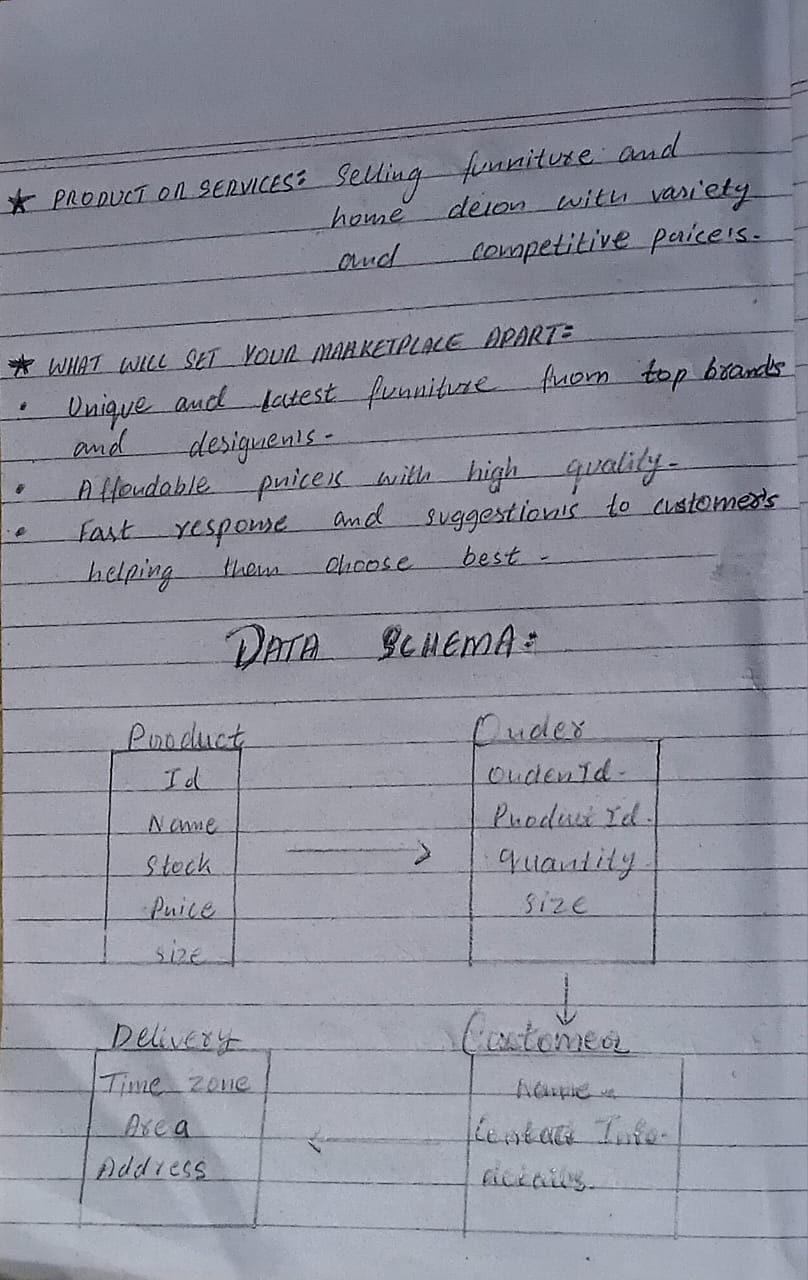 ★ PRODUCT OR SERVICES: Selling furniture and
home decor with variety
and competitive prices.
★ WHAT WILL SET YOUR MARKETPLACE APART:
• Unique and latest furniture from top brands
and designers.
• Affordable prices with high quality.
• Fast response and suggestions to customers
helping them choose best.
DATA SCHEMA:
Product
Id
Name
Stock
Price
Size
Order
Order Id.
Product Id.
quantity
size
Delivery
Time zone
Area
Address
Customer
Name
Contact Info.
details.